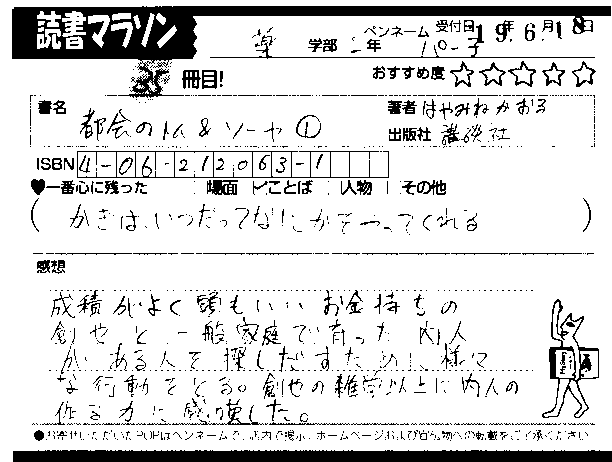 読書マラソン
薬 学部 二年 ペンネーム パーま 受付日 19年6月18日
35冊目! おすすめ度 ☆☆☆☆☆
書名 都会のトム&ソーヤ①
著者 はやみねかおる
出版社 講談社
ISBN 4-06-212063-1
♥一番心に残った 場面 ことば 人物 その他
( かぎは、いつだってなにかをつってくれる )
感想
成積がよく頭もいい お金持ちの
創也と、一般家庭で育った内人
が、ある人を探しだすために様々
な行動をとる。創也の雑学以上に内人の
作る力に感嘆した。
●お寄せいただいたPOPはペンネームで、店内で掲示、ホームページおよび宣伝物への転載をご了承ください